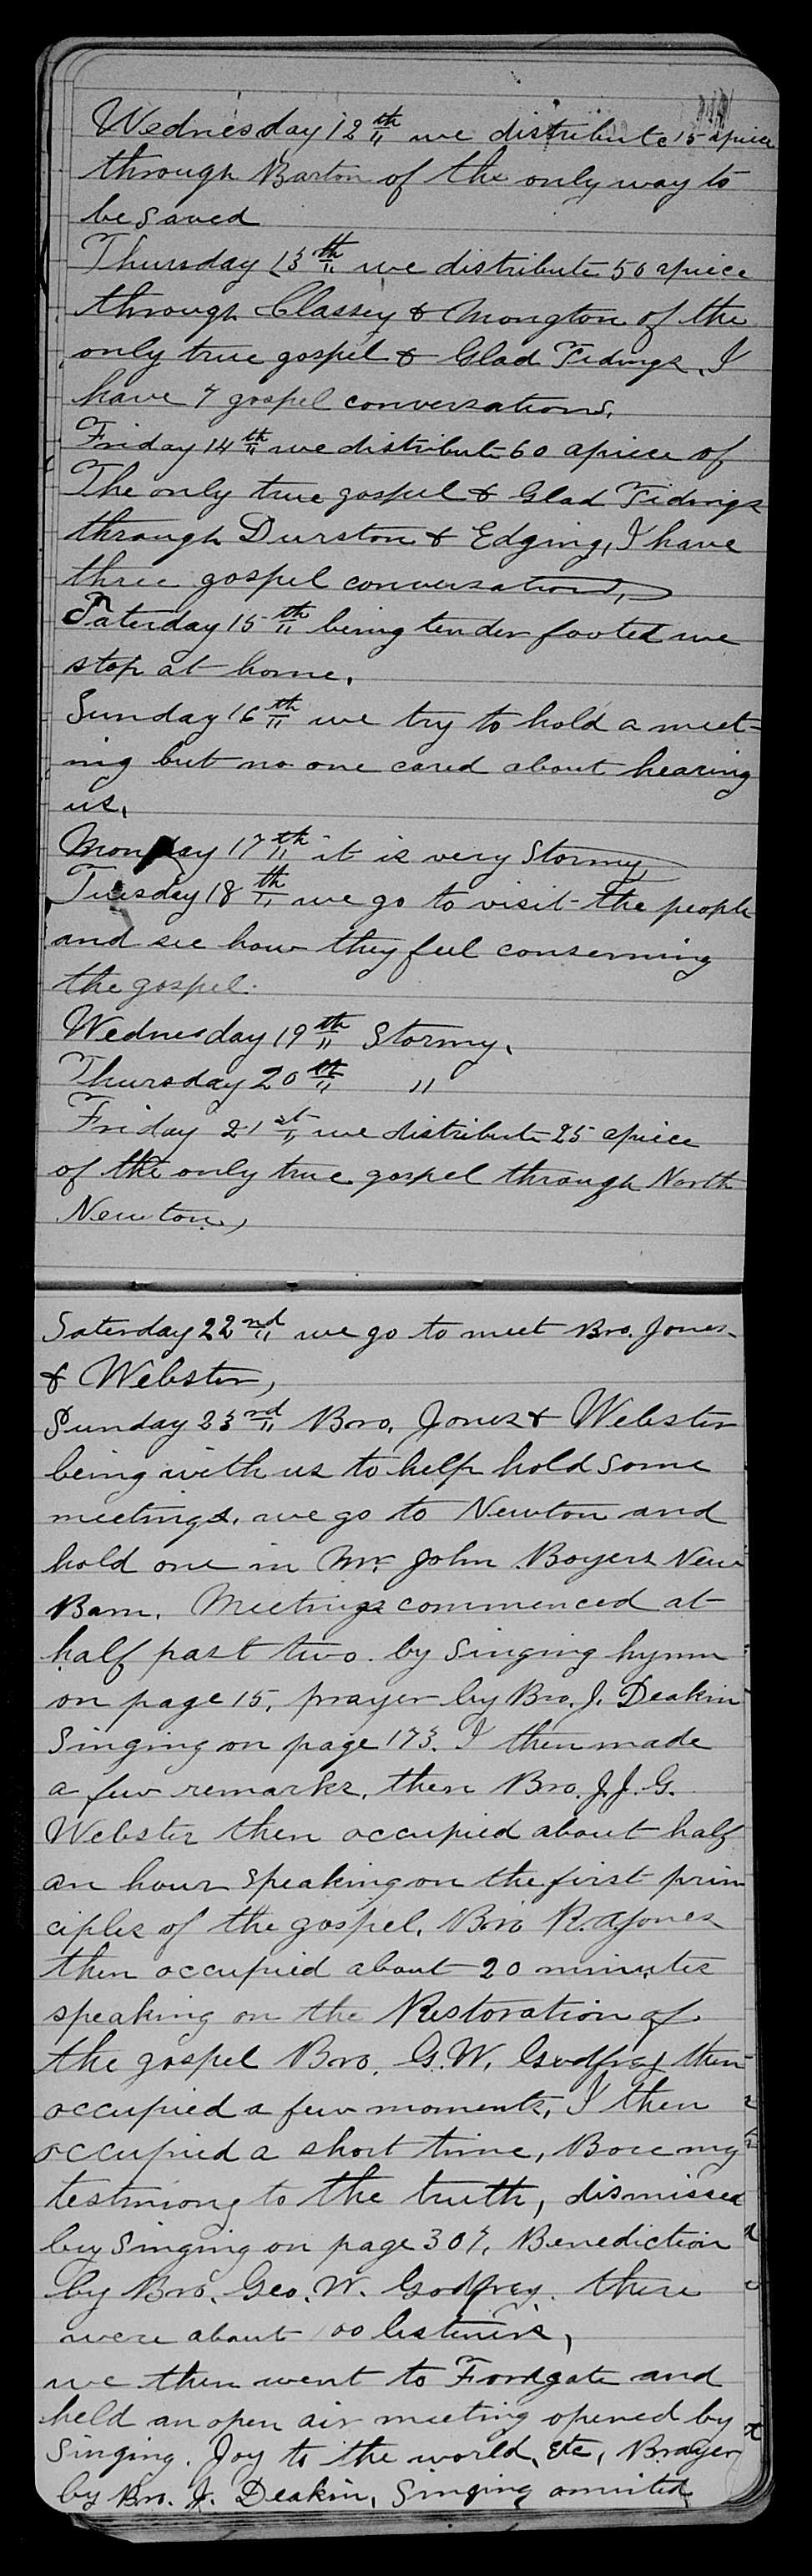 Wednesday 12th we distribute 15 apiece
through Barton of the only way to
be Saved
Thursday 13th we distribute 50 apiece
through Classey & Mongton of the
only true gospel & Glad Tidings. I
have 7 gospel conversations.
Friday 14th we distribute 60 apiece of
The only true gospel & Glad Tidings
through Durston & Edging, I have
three gospel conversations,
Saterday 15th being tender footed we
stop at home.
Sunday 16th we try to hold a meet=
ing but no one cared about hearing
us,
Monday 17th it is very Stormy,
Tuesday 18th we go to visit the people
and see how they feel conserning
the gospel.
Wednesday 19th Stormy.
Thursday 20th "
Friday 21st we distribute 25 apiece
of the only true gospel through North
Newton,
Saterday 22nd we go to meet Bro. Jones
& Webster,
Sunday 23rd Bro. Jones & Webster
being with us to help hold Some
meetings. we go to Newton and
hold one in Mr John Boyers New
Barn. Meetings commenced at
half past two. by Singing hymn
on page 15, prayer by Bro. J. Deakin
Singing on page 173. I then made
a few remarks. then Bro. J.J.G.
Webster then occupied about half
an hour Speaking on the first prin
ciples of the gospel. Bro R. A Jones
then occupied about 20 minutes
speaking on the Restoration of
the gospel Bro. G.W. Godfrey then
occupied a few moments, I then
occupied a short time, Bore my
testimony to the truth, dismissed
by Singing on page 307, Benediction
by Bro. Geo. W. Godfrey. there
were about 100 listeners,
we then went to Fordgate and
held an open air meeting opened by
Singing. Joy to the world, etc, Prayer
by Bro. J. Deakin, Singing omited